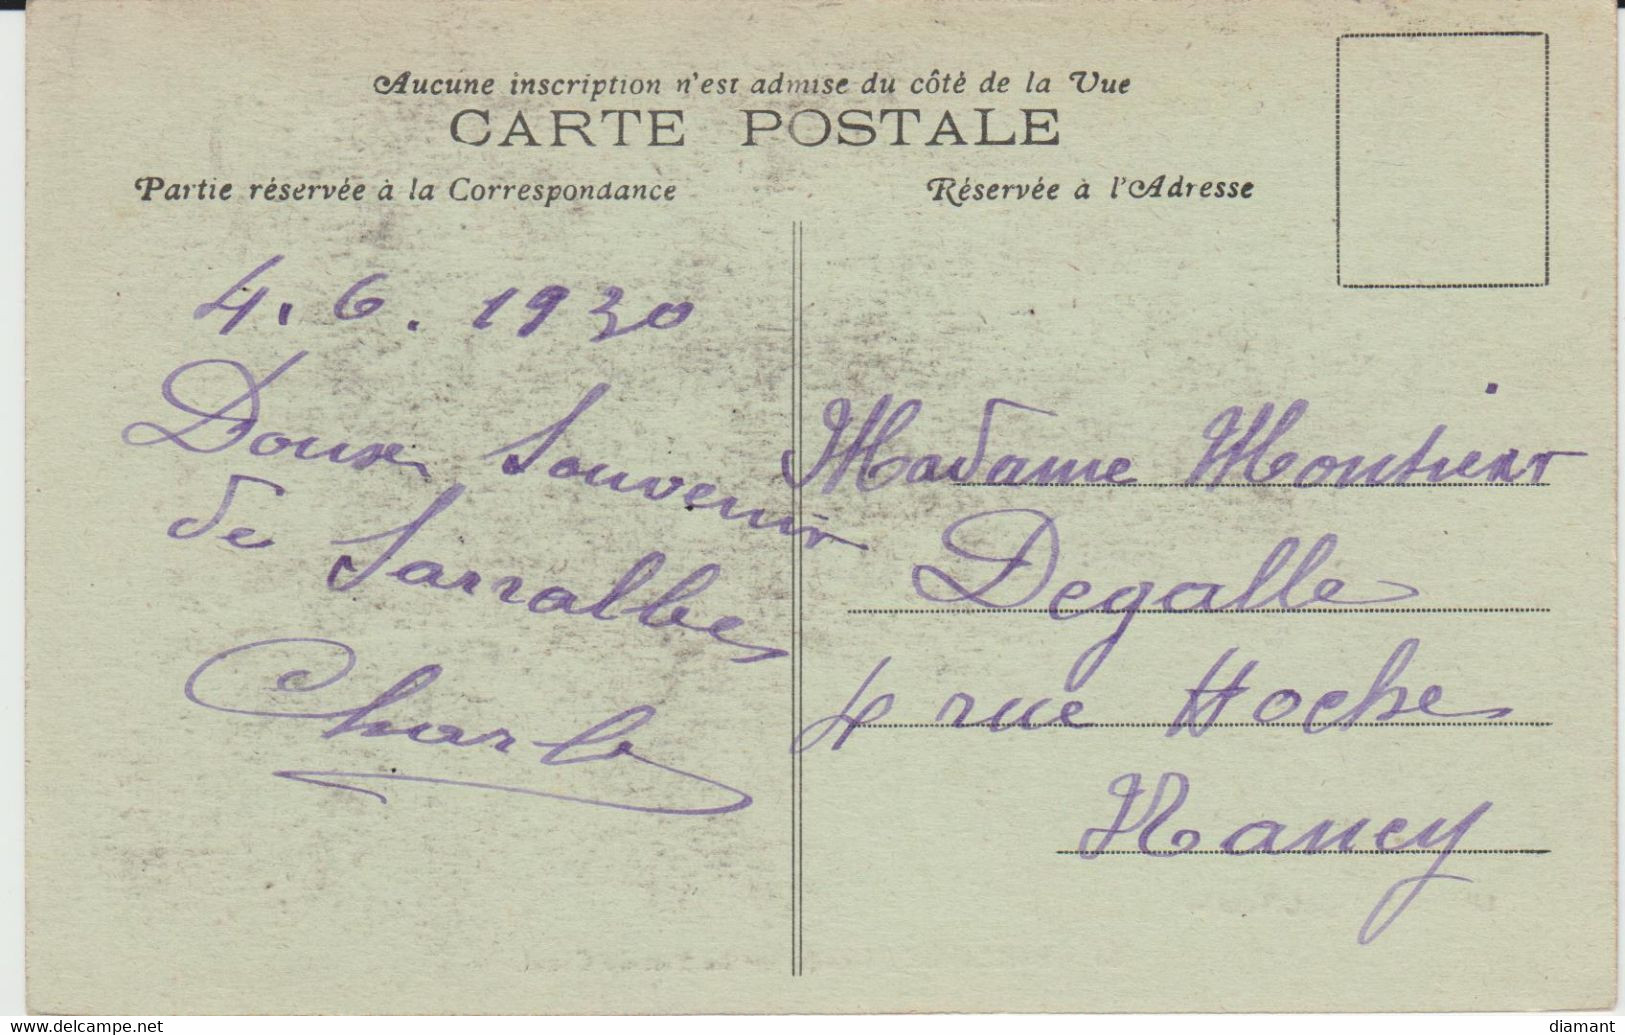 Aucune inscription n'est admise du côté de la Vue
CARTE POSTALE
Partie réservée à la Correspondance
Réservée à l'Adresse
4. 6. 1930
Doux Souvenir
de Sarralbe
Charles
Madame
Degalle
4 rue Hoche
Nancy
www.delcampe.net
diamant